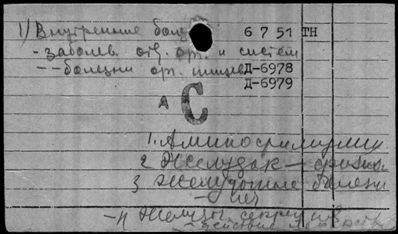 1) Внутренние бол 6 7 51 TH
- заболев. отд. орг. и систем
-- болезни орг. пищев. Д-6978
Д-6979
А С
1. Аминостимулин
2 Желудок — физиол.
3 Желудочные болезни
-- леч
-- 4 Железы секреция
- действие